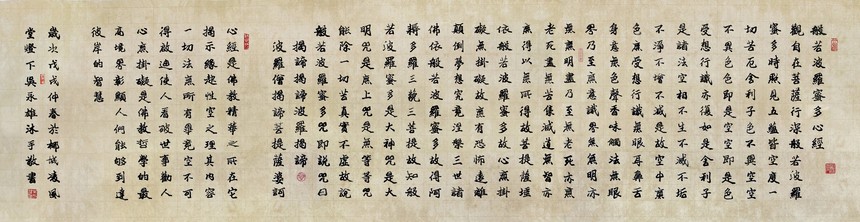 般若波羅蜜多心經
觀自在菩薩行深般若波羅
蜜多時照見五蘊皆空度一
切苦厄舍利子色不異空空
不異色色即是空空即是色
受想行識亦復如是舍利子
是諸法空相不生不滅不垢
不淨不增不減是故空中無
色無受想行識無眼耳鼻舌
身意無色聲香味觸法無眼
界乃至無意識界無無明亦
無無明盡乃至無老死亦無
老死盡無苦集滅道無智亦
無得以無所得故菩提薩埵
依般若波羅蜜多故心無掛
礙無掛礙故無有恐怖遠離
顛倒夢想究竟涅槃三世諸
佛依般若波羅蜜多故得阿
耨多羅三藐三菩提故知般
若波羅蜜多是大神咒是大
明咒是無上咒是無等等咒
能除一切苦真實不虛故說
般若波羅蜜多咒即說咒曰
揭諦揭諦波羅揭諦
波羅僧揭諦菩提薩婆訶
心經是佛教精華之所在它
揭示緣起性空之理其內容
一切法無所有畢竟空不可
得故迺使人看破世事勸人
心無掛礙是佛教哲學的最
高境界彰顯人們能夠到達
彼岸的智慧
歲次戊戌仲春於椰城凌風
堂燈下吳永雄沐手敬書